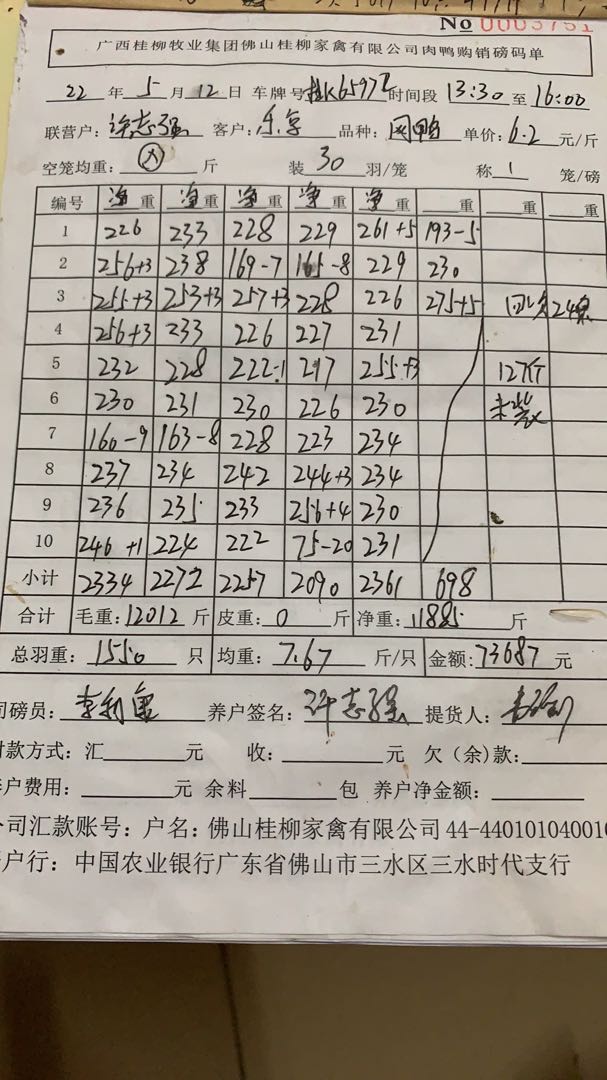 No 0003751
广西桂柳牧业集团佛山桂柳家禽有限公司肉鸭购销磅码单
22 年 5 月 12 日 车牌号 桂K6597 时间段 13:30 至 16:00
联营户: 许志强 客户: 乐享 品种: 单价: 6.2 元/斤
空笼均重: 斤 装 30 羽/笼 称 1 笼/磅
编号 净重 净重 净重 净重 净重 重 重 重
1 226 233 228 229 261+5 193-5
2 256+3 238 169-7 165-8 229 230
3 255+3 253+3 257+3 228 226 275+5 24
4 256+3 233 226 227 231
5 232 228 222-1 217 255+3 127斤
6 230 231 230 226 230 未装
7 160-9 163-8 228 223 234
8 237 234 242 244+3 234
9 236 235 233 256+4 230
10 246+1 224 222 75-20 231
小计 2334 2272 2257 2090 2361 698
合计 毛重: 12012 斤 皮重: 0 斤 净重: 11885 斤
总羽重: 1550 只 均重: 7.67 斤/只 金额: 73687 元
司磅员: 养户签名: 许志强 提货人:
付款方式: 汇 元 收: 元 欠(余)款:
养户费用: 元 余料 包 养户净金额:
公司汇款账号: 户名: 佛山桂柳家禽有限公司 44-440101040010
户行: 中国农业银行广东省佛山市三水区三水时代支行